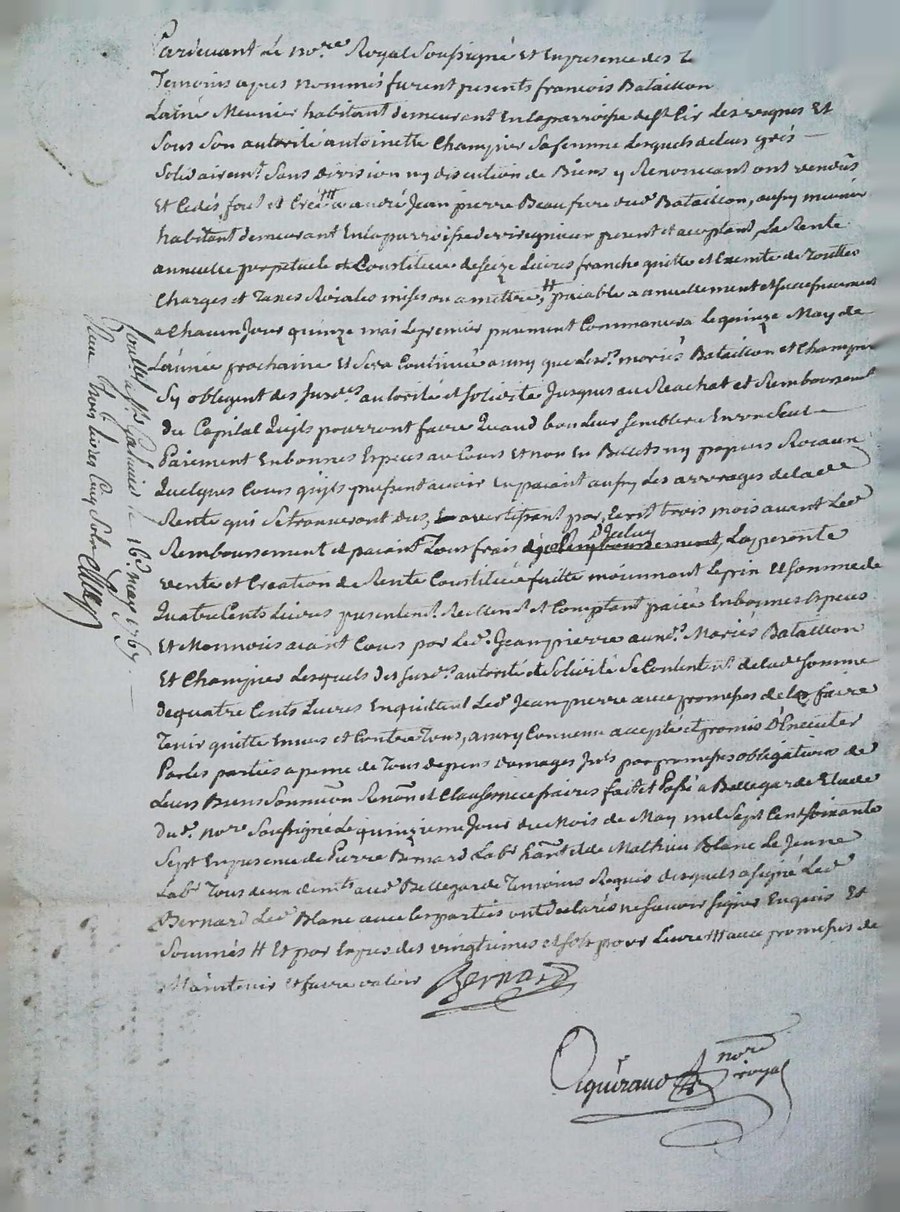 Pardevant Le no.re Royal Soussigné et En presence des
Temoins apres nommés furent presents francois Bataillon
Lainé Meunier habitant demeurant En la parroisse de St Cir Les vignes Et
Sous Son autorité antoinette Champier Sa femme Lesquels de leur grés
Solidairemt. Sans Division ny discution de Biens y Renoncant ont vendus
Et Cedés, font et à andré Jean pierre Beau frere dud. Bataillon, aussy meunier
habitant demeurant En la parroisse de virignieux present et aceptant, La Rente
annuelle perpetuele et Constituée de seize Livres franche quitte et Exemte de Touttes
Charges et Taxes Roiales mises ou a mettre, # paiable annuellement et
a Chacun Jour quinze mai Le premier paiement Commancera Le quinze May de
L'année prochaine Et Sera Continué ainsy que Lesd. mariés Bataillon et Champier
Sy obligent des susd. autorité et solidité Jusques au Reachat et Remboursement
Du Capital Quils pourront faire Quand bon Leur semblera En un Seul
Paiement En bonnes Especes au Cours et non En Billets ny papiers Roiaux
Quelques Cours quils puissent avoir En paiant aussy Les arrerages de lade
Rente qui Se trouveront dus, En avertissant par Ecrit trois mois avant Led.
Remboursement et paiant Tous frais d'Iceluy, La presente
vente et Creation de Rente Constituée faitte moiennant Le prix Et Somme de
Quatre Cents Livres presentemt. Reellemt. et Comptant paiée En bonnes Especes
Et Monnois aiant Cours par Led. Jean pierre auxd. Mariés Bataillon
Et Champier Lesquels des susd. autorité et Solidité Se Contentent de lade Somme
de quatre Cents Livres En quittent Led. Jean pierre avec promesses de Le faire
Tenir quitte Envers et Contre Tous, ainsy Convenu accepté et promis D'Executer
Par les parties a peine de Tous depens domages Jnts. par promesses obligations de
Leurs Biens Soumion Renon et Clauses necessaires fait et Passé a Bellegarde Etude
Dud. nore Soussigné Le quinzieme Jour du Mois de May mil Sept Cent Soixante
Sept En presence de Pierre Bernard Labr. et de Mathieu Blanc Le Jeune
Labr. Tous deux aud. Bellegarde Temoins Requis desquels a signé Led.
Bernard Led. Blanc avec Les parties ont declarés ne savoir signer Enquis Et
Sommés # Et par Expres des vingtiemes et sols pour Livre # avec promesses de
Maintenir Et faire valoir Bernard
aguiraud nore
royal
le 16 may 1767
Reçu trois livres Cinq Sols